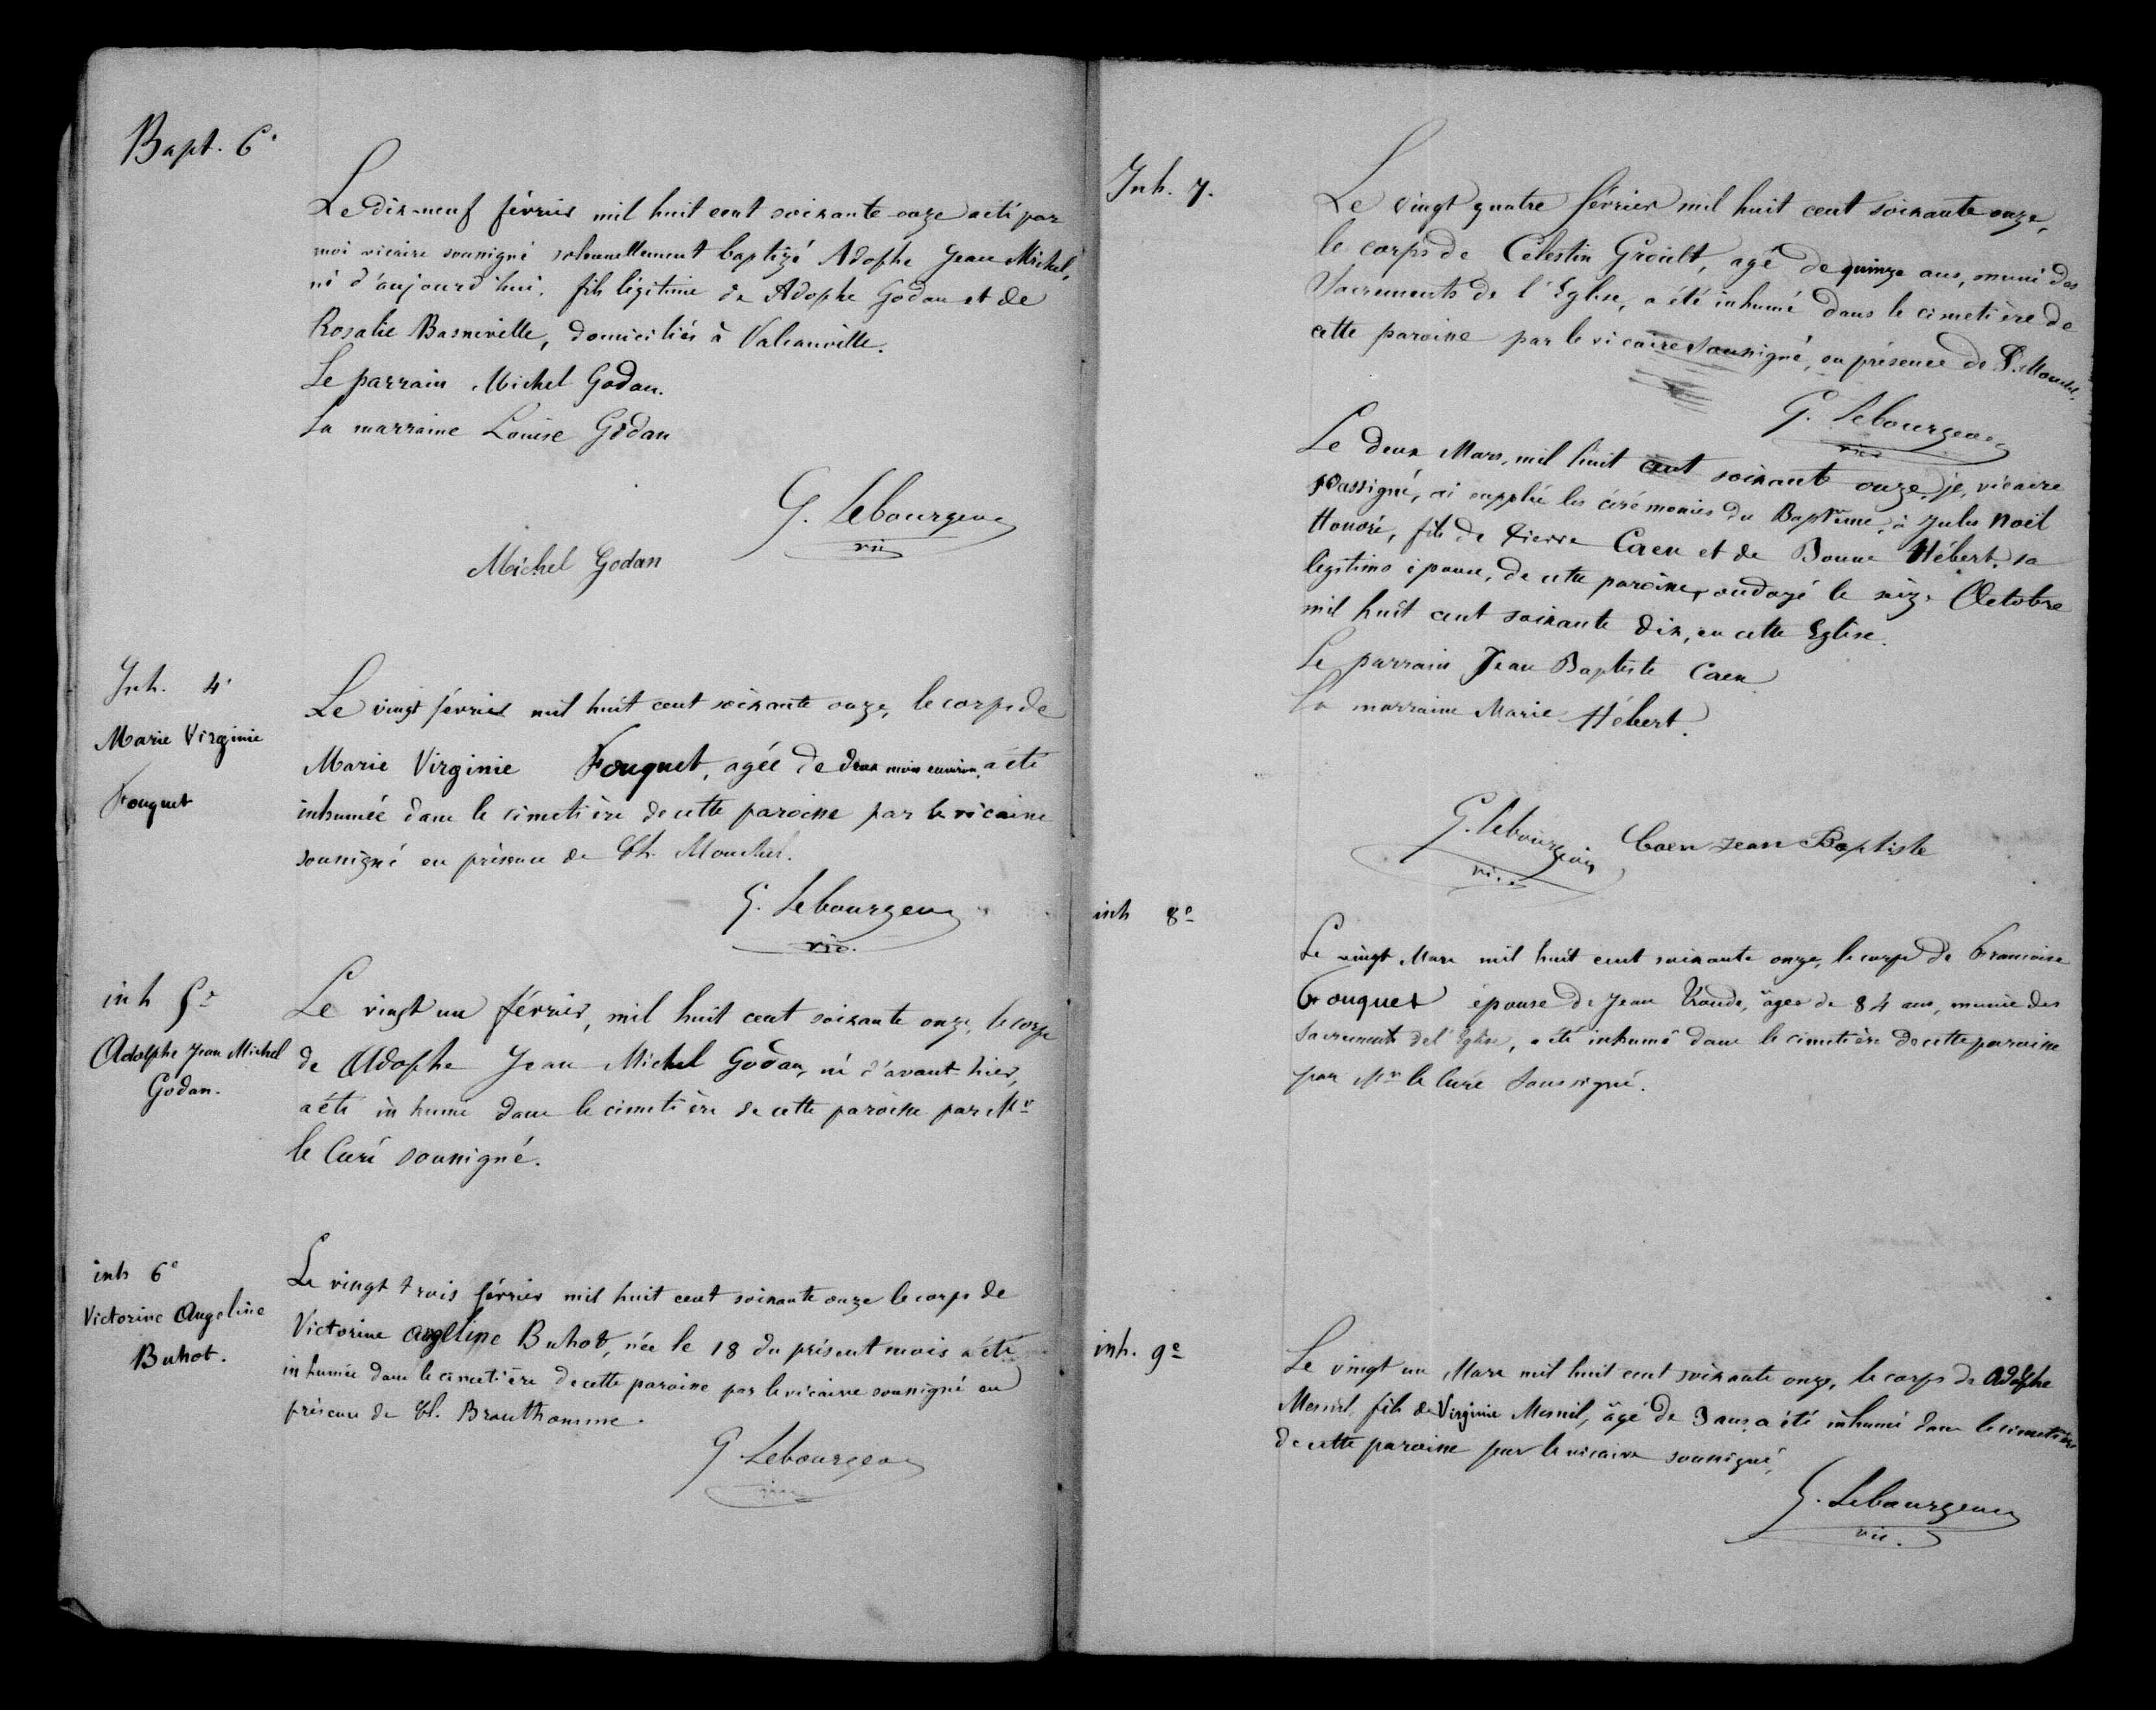 Bapt. 6e
Le dix-neuf février mil huit cent soixante-onze a été par
moi vicaire soussigné solennellement baptizé Adophe Jean Michel,
né d'aujourd'hui, fils légitime de Adophe Godan et de
Rosalie Basneville, domiciliés à Valcanville.
Le parrain Michel Godan.
La marraine Louise Godan
G. Lebourgeois
vic
Michel Godan
Inh. 4e
Marie Virginie
Fouquet
Le vingt février mil huit cent soixante onze, le corps de
Marie Virginie Fouquet, agée de deux mois environ, a été
inhumée dans le cimetière de cette paroisse par le vicaire
soussigné en présence de Ch. Mouchel.
G. Lebourgeois
vic.
inh 5e
Adolphe Jean Michel
Godan.
Le vingt un février, mil huit cent soixante onze, le corps
de Adophe Jean Michel Godan, né d'avant-hier,
a été inhumé dans le cimetière de cette paroisse par Mr
le Curé soussigné.
inh 6e
Victorine Angeline
Buhot.
Le vingt trois février mil huit cent soixante onze le corps de
Victorine Angeline Buhot, née le 18 du présent mois a été
inhumée dans le cimetière de cette paroisse par le vicaire soussigné en
présence de Brouthomme.
G. Lebourgeois
vic
Inh. 7.
Le vingt quatre février mil huit cent soixante onze,
le corps de Célestin Groult, agé de quinze ans, muni des
Sacrements de l'Eglise, a été inhumé dans le cimetière de
cette paroisse par le vicaire soussigné, en présence de Mouchel.
G. Lebourgeois
vic
Le deux Mars, mil huit cent soixante onze, je, vicaire
soussigné, ai supplée les cérémonies du Baptême, à Jules Noël
Honoré, fils de Pierre Caen et de Bonne Hébert, sa
légitime épouse, de cette paroisse, ondoyé le seize Octobre
mil huit cent soixante dix, en cette Eglise.
Le parrain Jean Baptiste Caen
La marraine Marie Hébert.
G. Lebourgeois
vic.
Caen Jean Baptiste
inh 8e
Le vingt Mars mil huit cent soixante onze, le corps de Francoise
Fouquet épouse de Jean agée de 84 ans, munie des
Sacrements de l'Eglise, a été inhumé dans le cimetière de cette paroisse
par Mr le Curé Soussigné.
inh. 9e
Le vingt un Mars mil huit cent soixante onze, le corps de Adolphe
Mesnil, fils de Virginie Mesnil, âgé de 3 ans a été inhumé dans le cimetière
de cette paroisse par le vicaire soussigné,
G. Lebourgeois
vic.